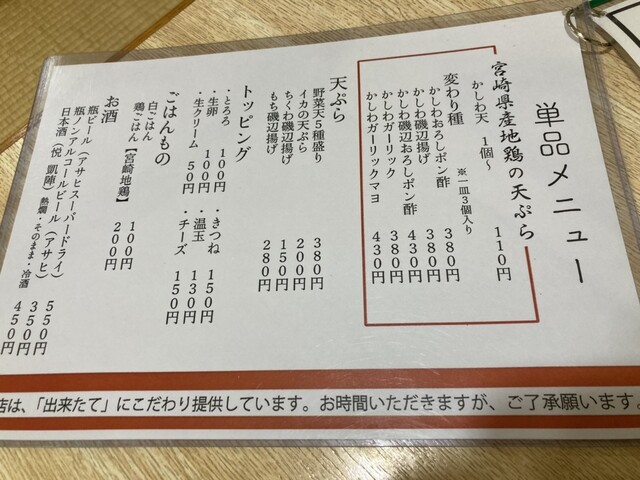 単品メニュー
宮崎県産地鶏の天ぷら
かしわ天 1個～ 110円
変わり種 ※一皿3個入り
かしわおろしポン酢 380円
かしわ磯辺揚げ 380円
かしわ磯辺おろしポン酢 430円
かしわガーリック 380円
かしわガーリックマヨ 430円
天ぷら
野菜天5種盛り 380円
イカの天ぷら 200円
ちくわ磯辺揚げ 150円
もち磯辺揚げ 280円
トッピング
・とろろ 100円 ・きつね 150円
・生卵 100円 ・温玉 130円
・生クリーム 50円 ・チーズ 150円
ごはんもの
白ごはん 100円
鶏ごはん【宮崎地鶏】 200円
お酒
瓶ビール（アサヒスーパードライ） 550円
瓶ノンアルコールビール（アサヒ） 350円
日本酒（悦 凱陣）熱燗・そのまま・冷酒 450円
店は、「出来たて」にこだわり提供しています。お時間いただきますが、ご了承願います。